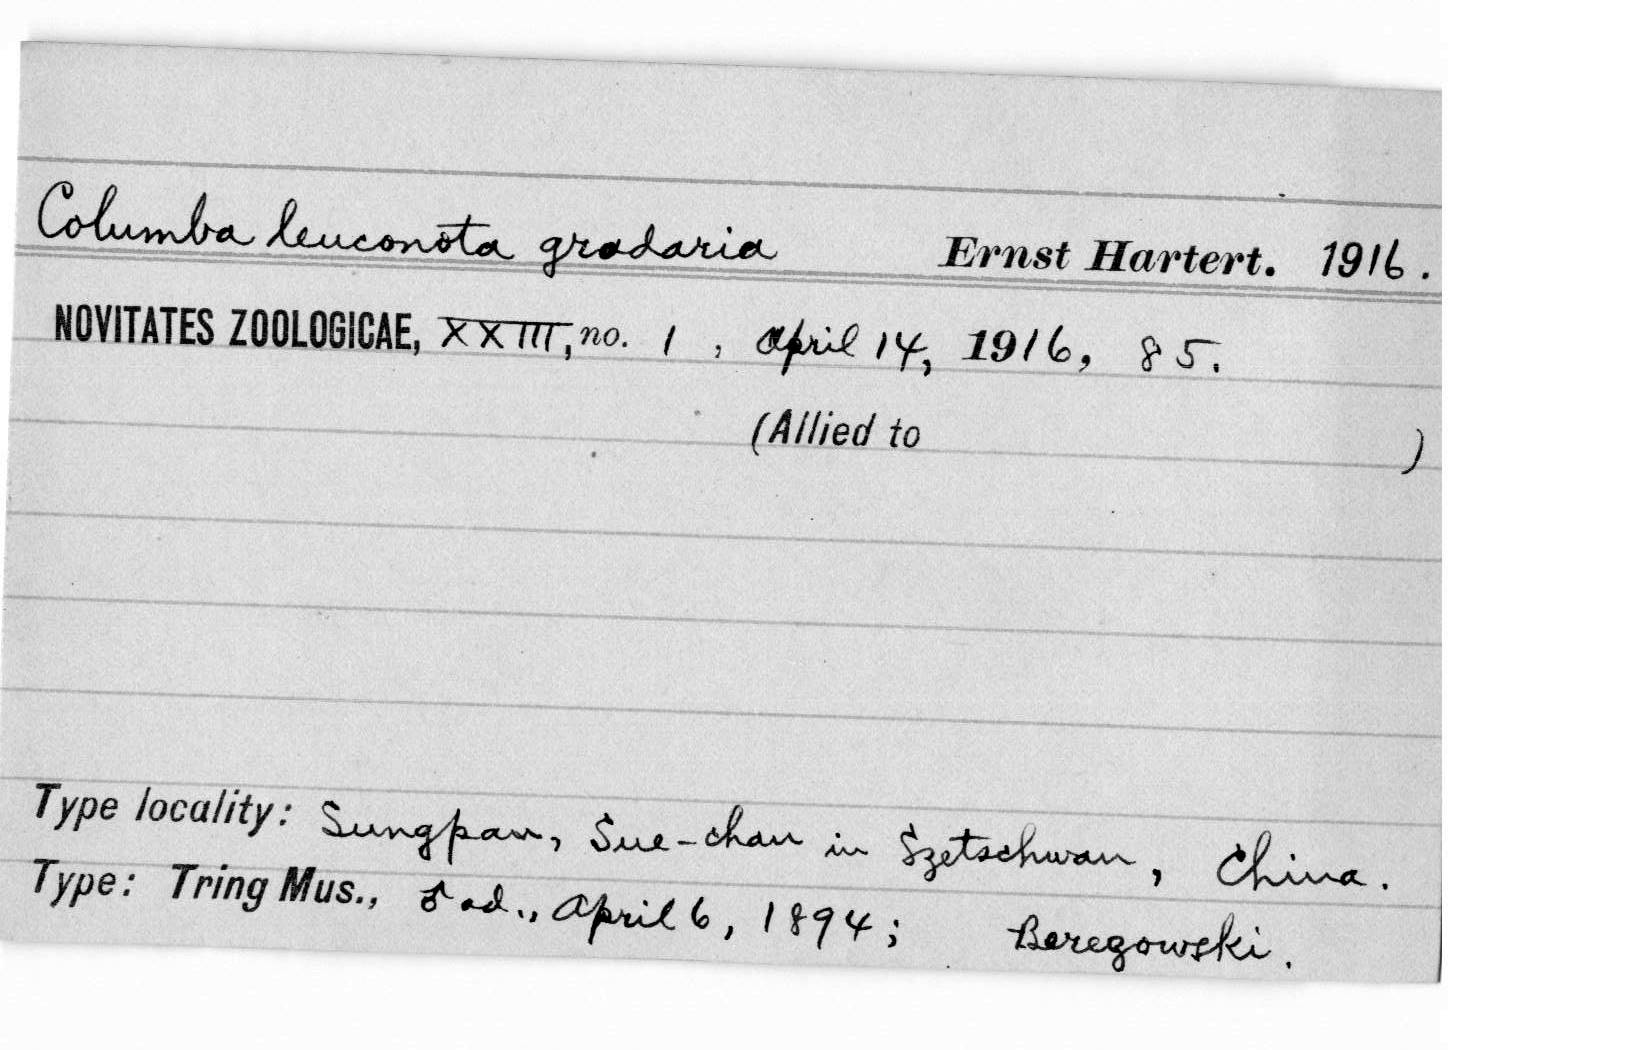 Columba leuconota gradaria Ernst Hartert. 1916.
NOVITATES ZOOLOGICAE, XXIII, no. 1, April 14, 1916, 85.
(Allied to )
Type locality: Sungpan, Sue-chan in Szetschwan, China.
Type: Tring Mus., ♂ ad., April 6, 1894; Beregowski.